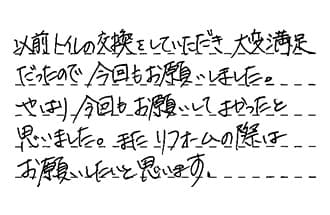 以前トイレの交換をしていただき 大変満足
だったので 今回もお願いしました。
やはり 今回も お願いして よかったと
思いました。また リフォームの際は
お願いしたいと思います。